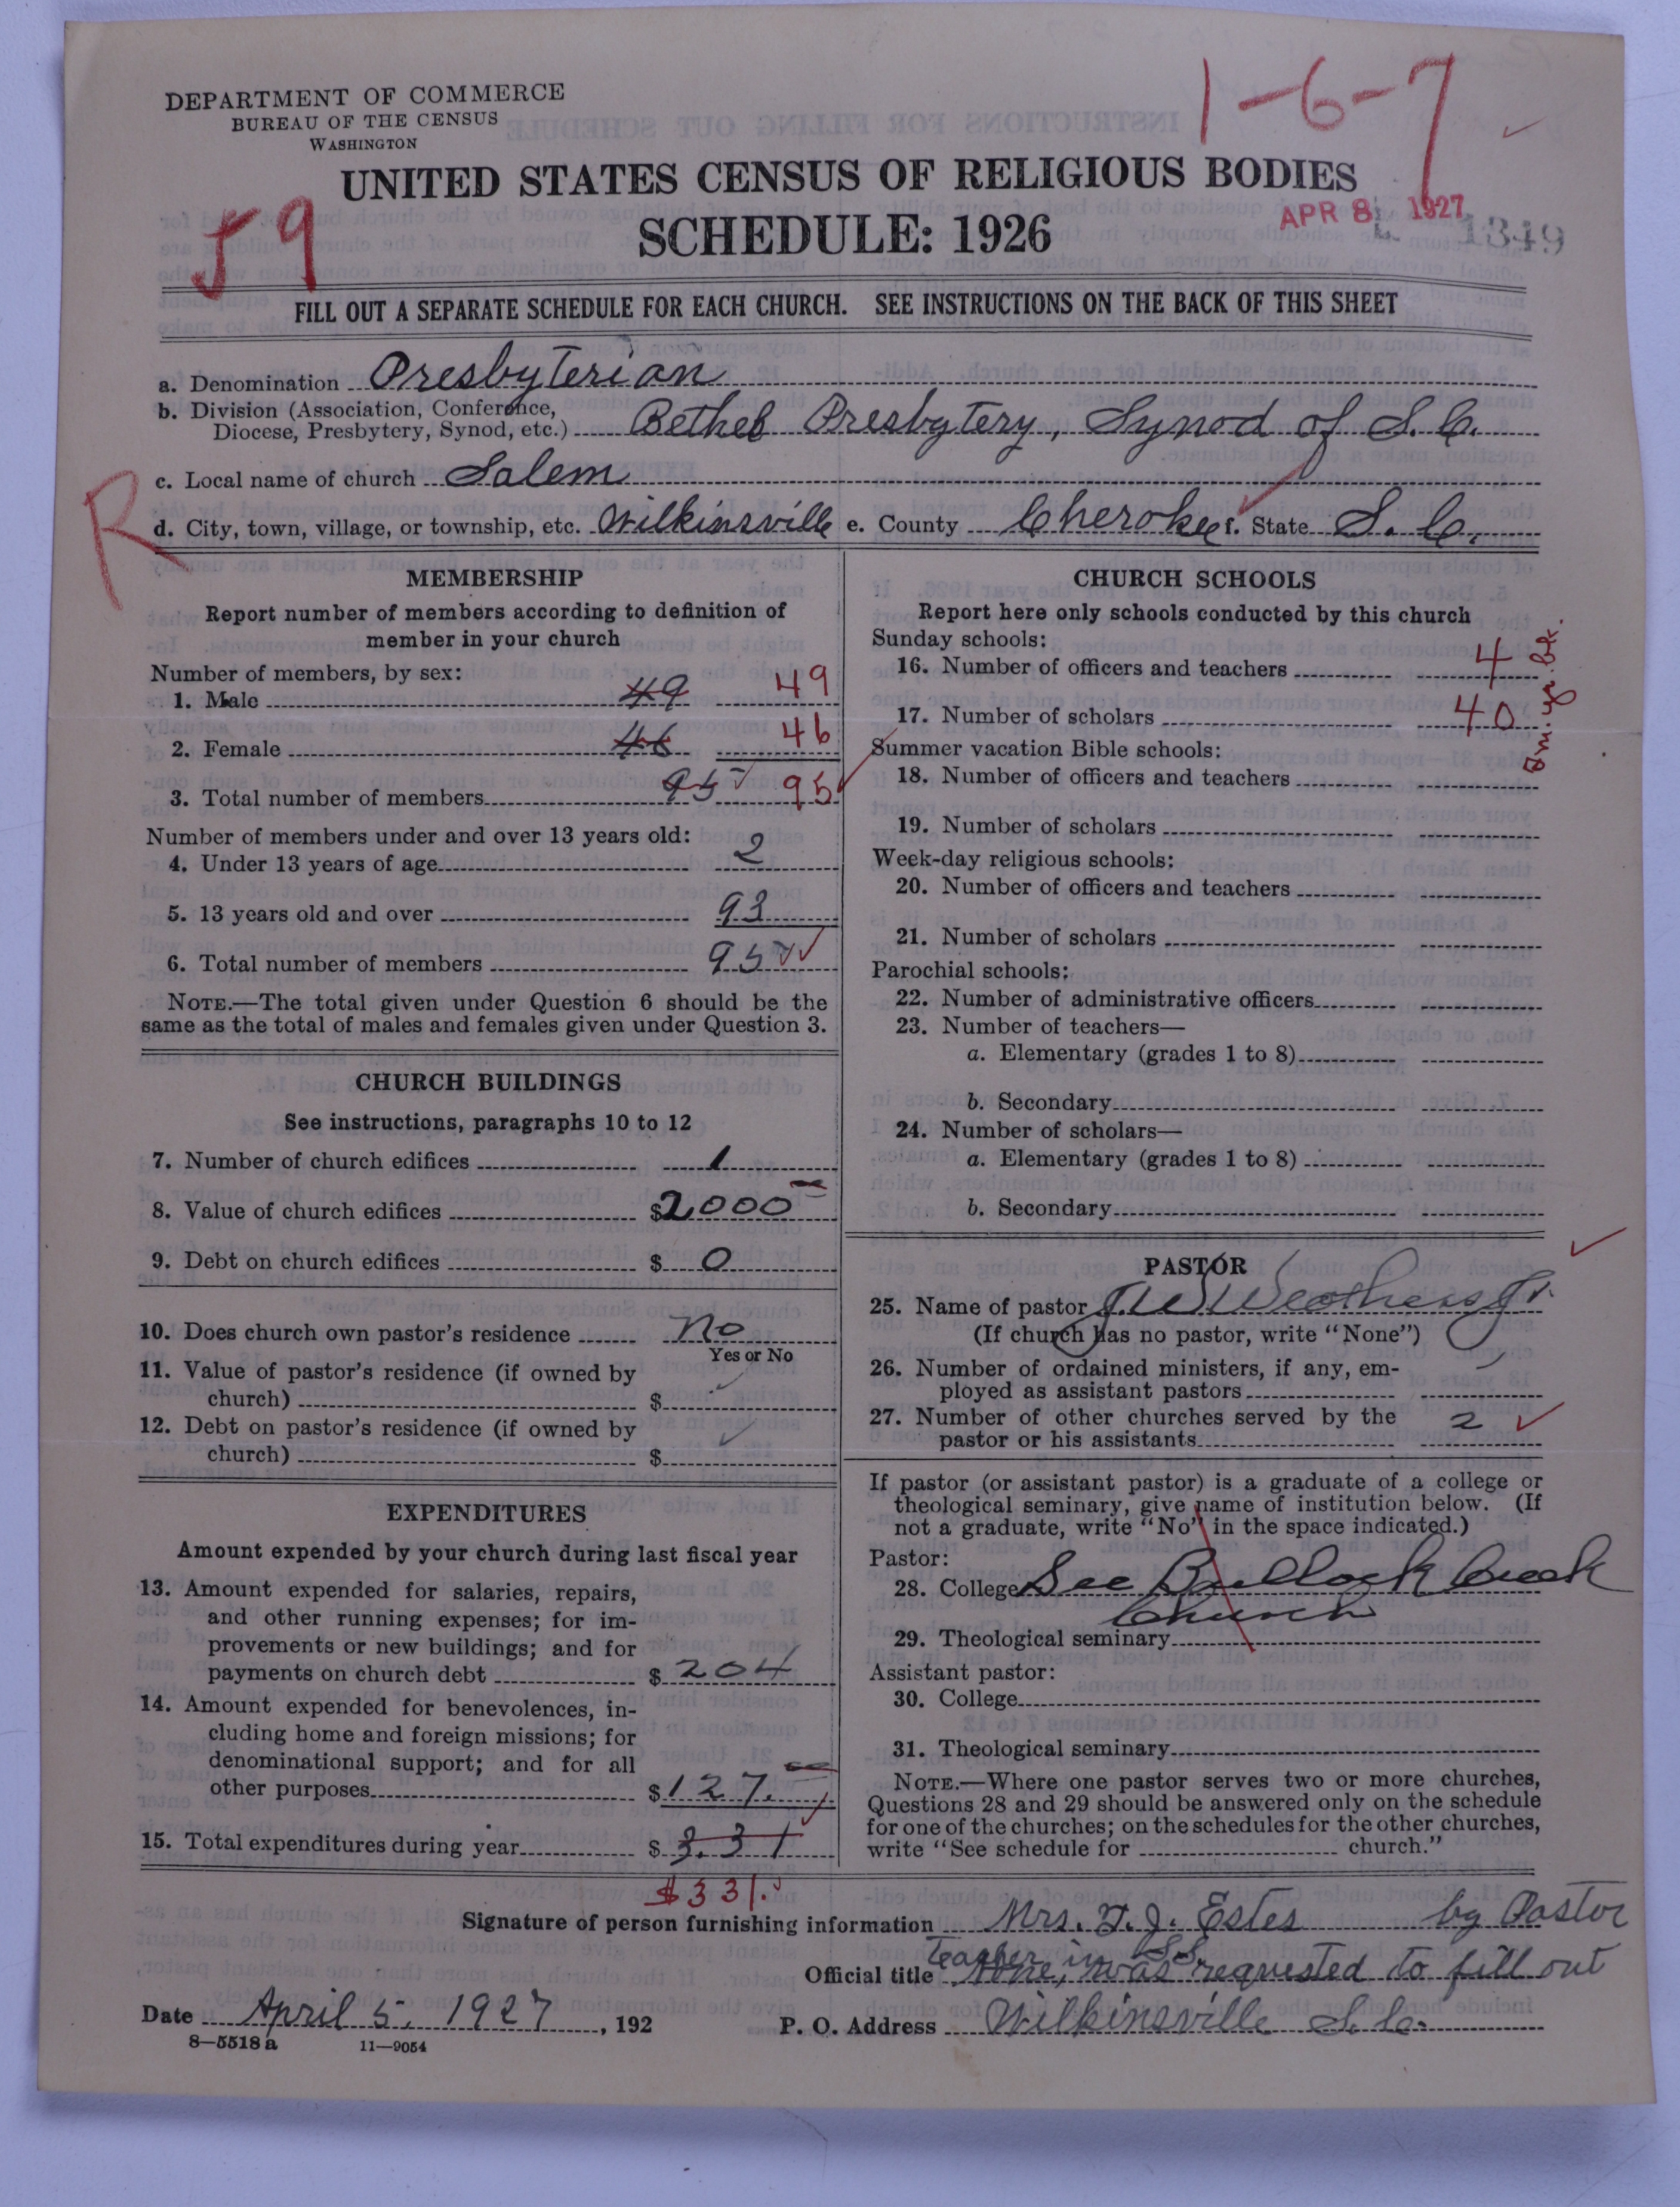 DEPARTMENT OF COMMERCE
BUREAU OF THE CENSUS
WASHINGTON
1-6-7
UNITED STATES CENSUS OF RELIGIOUS BODIES
SCHEDULE: 1926
59
APR 8 1927
1349
FILL OUT A SEPARATE SCHEDULE FOR EACH CHURCH. SEE INSTRUCTIONS ON THE BACK OF THIS SHEET
a. Denomination Presbyterian
b. Division (Association, Conference,
Diocese, Presbytery, Synod, etc.) Bethel Presbytery, Synod of S.C.
c. Local name of church Salem
R
d. City, town, village, or township, etc. Wilkinsville e. County Cherokee f. State S. C.
MEMBERSHIP
Report number of members according to definition of
member in your church
Number of members, by sex:
1. Male 49 49
2. Female 46 46
3. Total number of members 95 95
Number of members under and over 13 years old:
4. Under 13 years of age 2
5. 13 years old and over 93
6. Total number of members 95
NOTE.—The total given under Question 6 should be the
same as the total of males and females given under Question 3.
CHURCH BUILDINGS
See instructions, paragraphs 10 to 12
7. Number of church edifices 1
8. Value of church edifices $2000
9. Debt on church edifices $ 0
10. Does church own pastor's residence no
Yes or No
11. Value of pastor's residence (if owned by
church) $
12. Debt on pastor's residence (if owned by
church) $
EXPENDITURES
Amount expended by your church during last fiscal year
13. Amount expended for salaries, repairs,
and other running expenses; for im-
provements or new buildings; and for
payments on church debt $ 204
14. Amount expended for benevolences, in-
cluding home and foreign missions; for
denominational support; and for all
other purposes $127.
15. Total expenditures during year $ 331
$331.
CHURCH SCHOOLS
Report here only schools conducted by this church
Sunday schools:
16. Number of officers and teachers 4
17. Number of scholars 40
Summer vacation Bible schools:
18. Number of officers and teachers
19. Number of scholars
Week-day religious schools:
20. Number of officers and teachers
21. Number of scholars
Parochial schools:
22. Number of administrative officers
23. Number of teachers—
a. Elementary (grades 1 to 8)
b. Secondary
24. Number of scholars—
a. Elementary (grades 1 to 8)
b. Secondary
PASTOR
25. Name of pastor J. W. Weathers Jr.
(If church has no pastor, write "None")
26. Number of ordained ministers, if any, em-
ployed as assistant pastors
27. Number of other churches served by the
pastor or his assistants 2
If pastor (or assistant pastor) is a graduate of a college or
theological seminary, give name of institution below. (If
not a graduate, write "No" in the space indicated.)
Pastor:
28. College See Bullock Creek
Church
29. Theological seminary
Assistant pastor:
30. College
31. Theological seminary
NOTE.—Where one pastor serves two or more churches,
Questions 28 and 29 should be answered only on the schedule
for one of the churches; on the schedules for the other churches,
write "See schedule for church."
Signature of person furnishing information Mrs. T. J. Estes by Pastor
Teacher in S.S.
Official title None, was requested to fill out
Date April 5, 1927, 192
P. O. Address Wilkinsville S. C.
8—5518a 11—9054